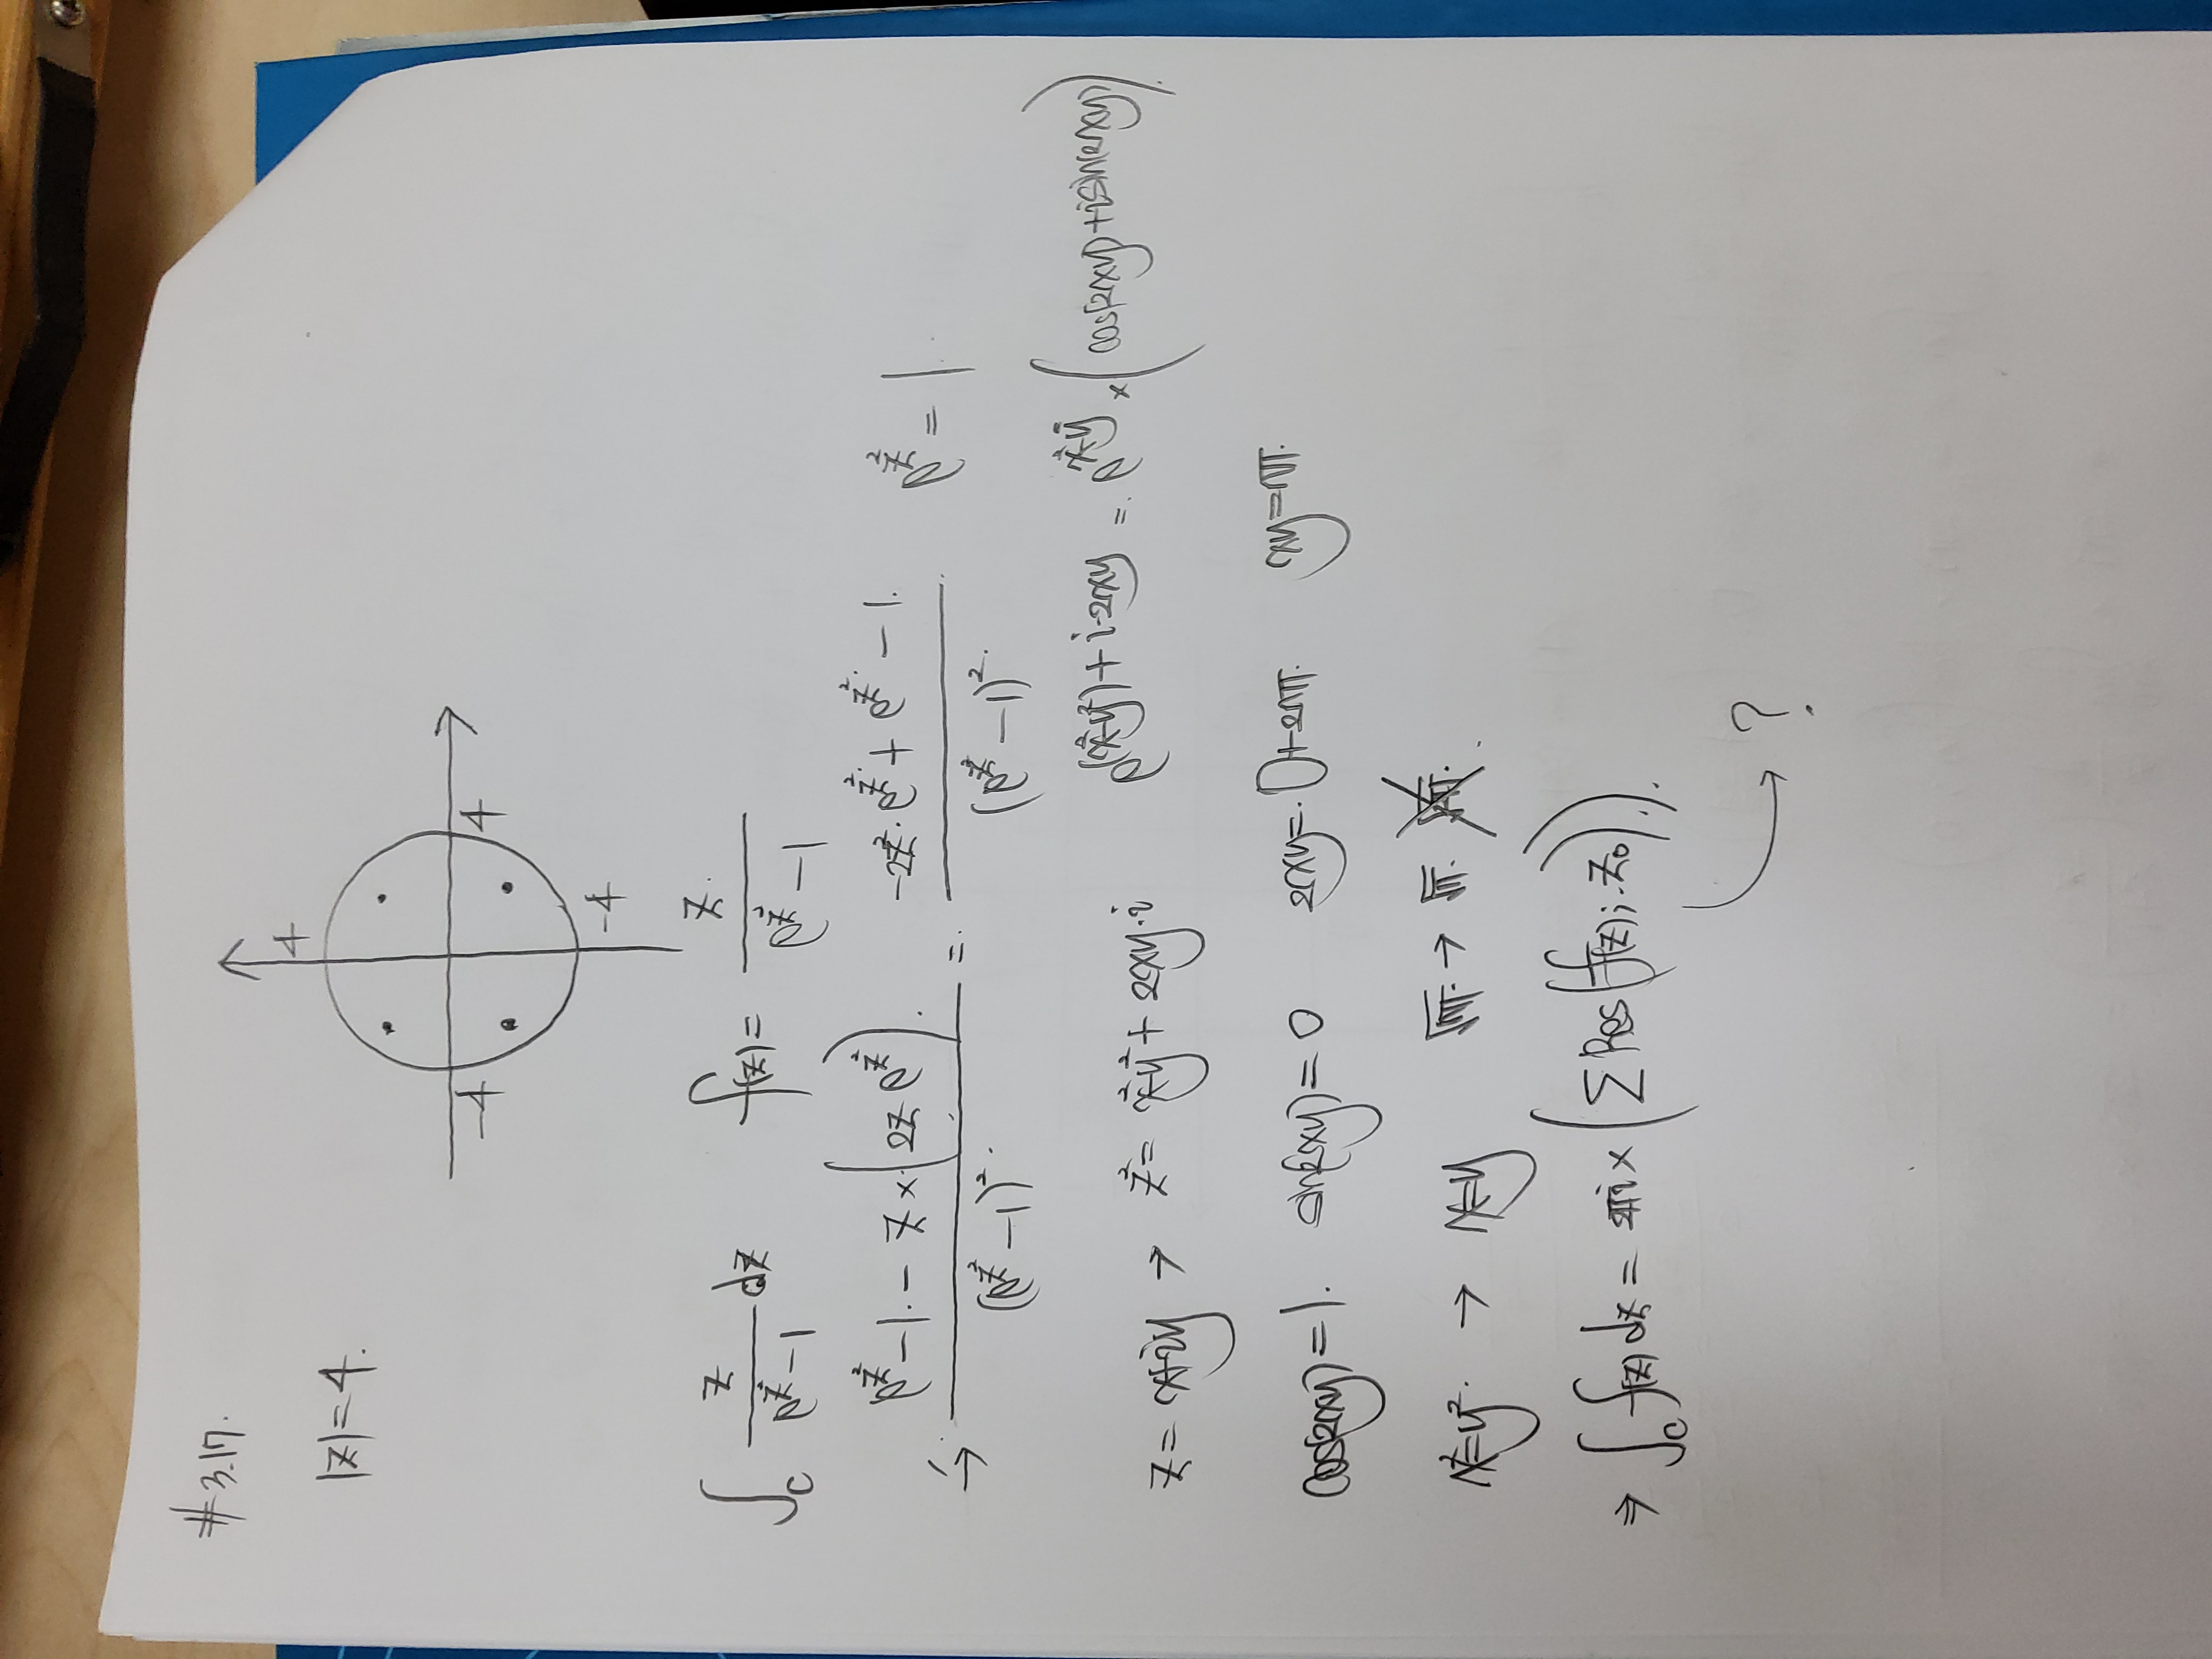 #3.17.
|z|=4.
4
-4
4
-4
∫_C z/(e^{z²}-1) dz    f(z) = z/(e^{z²}-1)
↳ (e^{z²}-1.-z×(2z·e^{z²}))/(e^{z²}-1)². = (-2z²·e^{z²}+e^{z²}-1.)/(e^{z²}-1)².    e^{z²}=1.
z=x+iy → z²=x²-y²+2xy·i    e^{(x²-y²)+i·2xy} = e^{x²-y²}×(cos(2xy)+isin(2xy)).
cos(2xy)=1. sin(2xy)=0    2xy=.0+2nπ.    xy=nπ.
x²=y². → x=y    √nπ. → √π.
⇒ ∫_C f(z)dz = 2πi×(∑Res(f(z);z₀)).
?